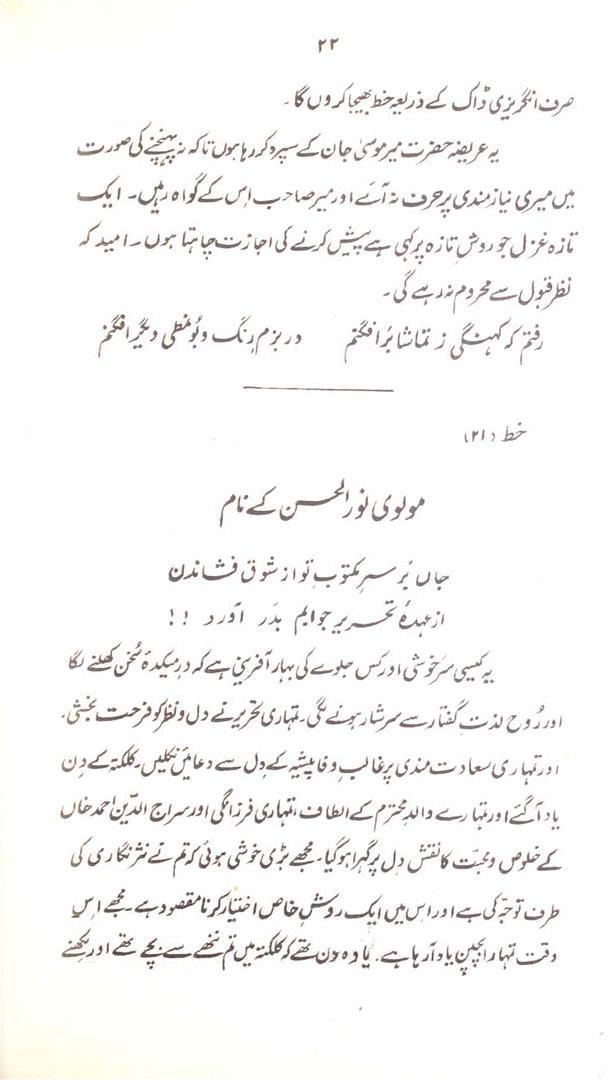 ۲۲
صرف انگریزی ڈاک کے ذریعہ خط بھیجا کروں گا۔
یہ عریضہ حضرت میر موسیٰ جان کے سپرد کر رہا ہوں تاکہ نہ پہنچنے کی صورت
میں میری نیازمندی پر حرف نہ آئے اور میر صاحب اِس کے گواہ رہیں۔ ایک
تازہ غزل جو روشِ تازہ پر کہی ہے پیش کرنے کی اجازت چاہتا ہوں۔ امید کہ
نظرِ قبول سے محروم نہ رہے گی۔
رفتم کہ کہنگی ز تماشا بر افگنم    در بزمِ رنگ و بُو نمطی دیگر افگنم
خط (۲۱)
مولوی نورالحسن کے نام
جاں بَر سرِ مکتوبِ تو از شوق فشاندن
از عہدۂ تحریرِ جوابم بدَر آورد !!
یہ کیسی سرخوشی اور کس جلوے کی بہار آفرینی ہے کہ درِ میکدۂ سُخن کھلنے لگا
اور رُوح لذتِ گفتار سے سرشار ہونے لگی۔ تمہاری تحریر نے دل و نظر کو فرحت بخشی۔
اور تمہاری سعادت مندی پر غالبِ وفا پیشہ کے دِل سے دعائیں نکلیں۔ کلکتہ کے دِن
یاد آ گئے اور تمہارے والدِ محترم کے الطاف، تمہاری فرزانگی اور سراج الدّین احمد خاں
کے خلوص و محبّت کا نقش دِل پر گہرا ہو گیا۔ مجھے بڑی خوشی ہوئی کہ تم نے نثر نگاری کی
طرف توجّہ کی ہے اور اس میں ایک روشِ خاص اختیار کرنا مقصود ہے۔ مجھے اِس
وقت تمہارا بچپن یاد آ رہا ہے۔ یا وہ دن تھے کہ کلکتہ میں تم ننھے سے بچے تھے اور لکھنے